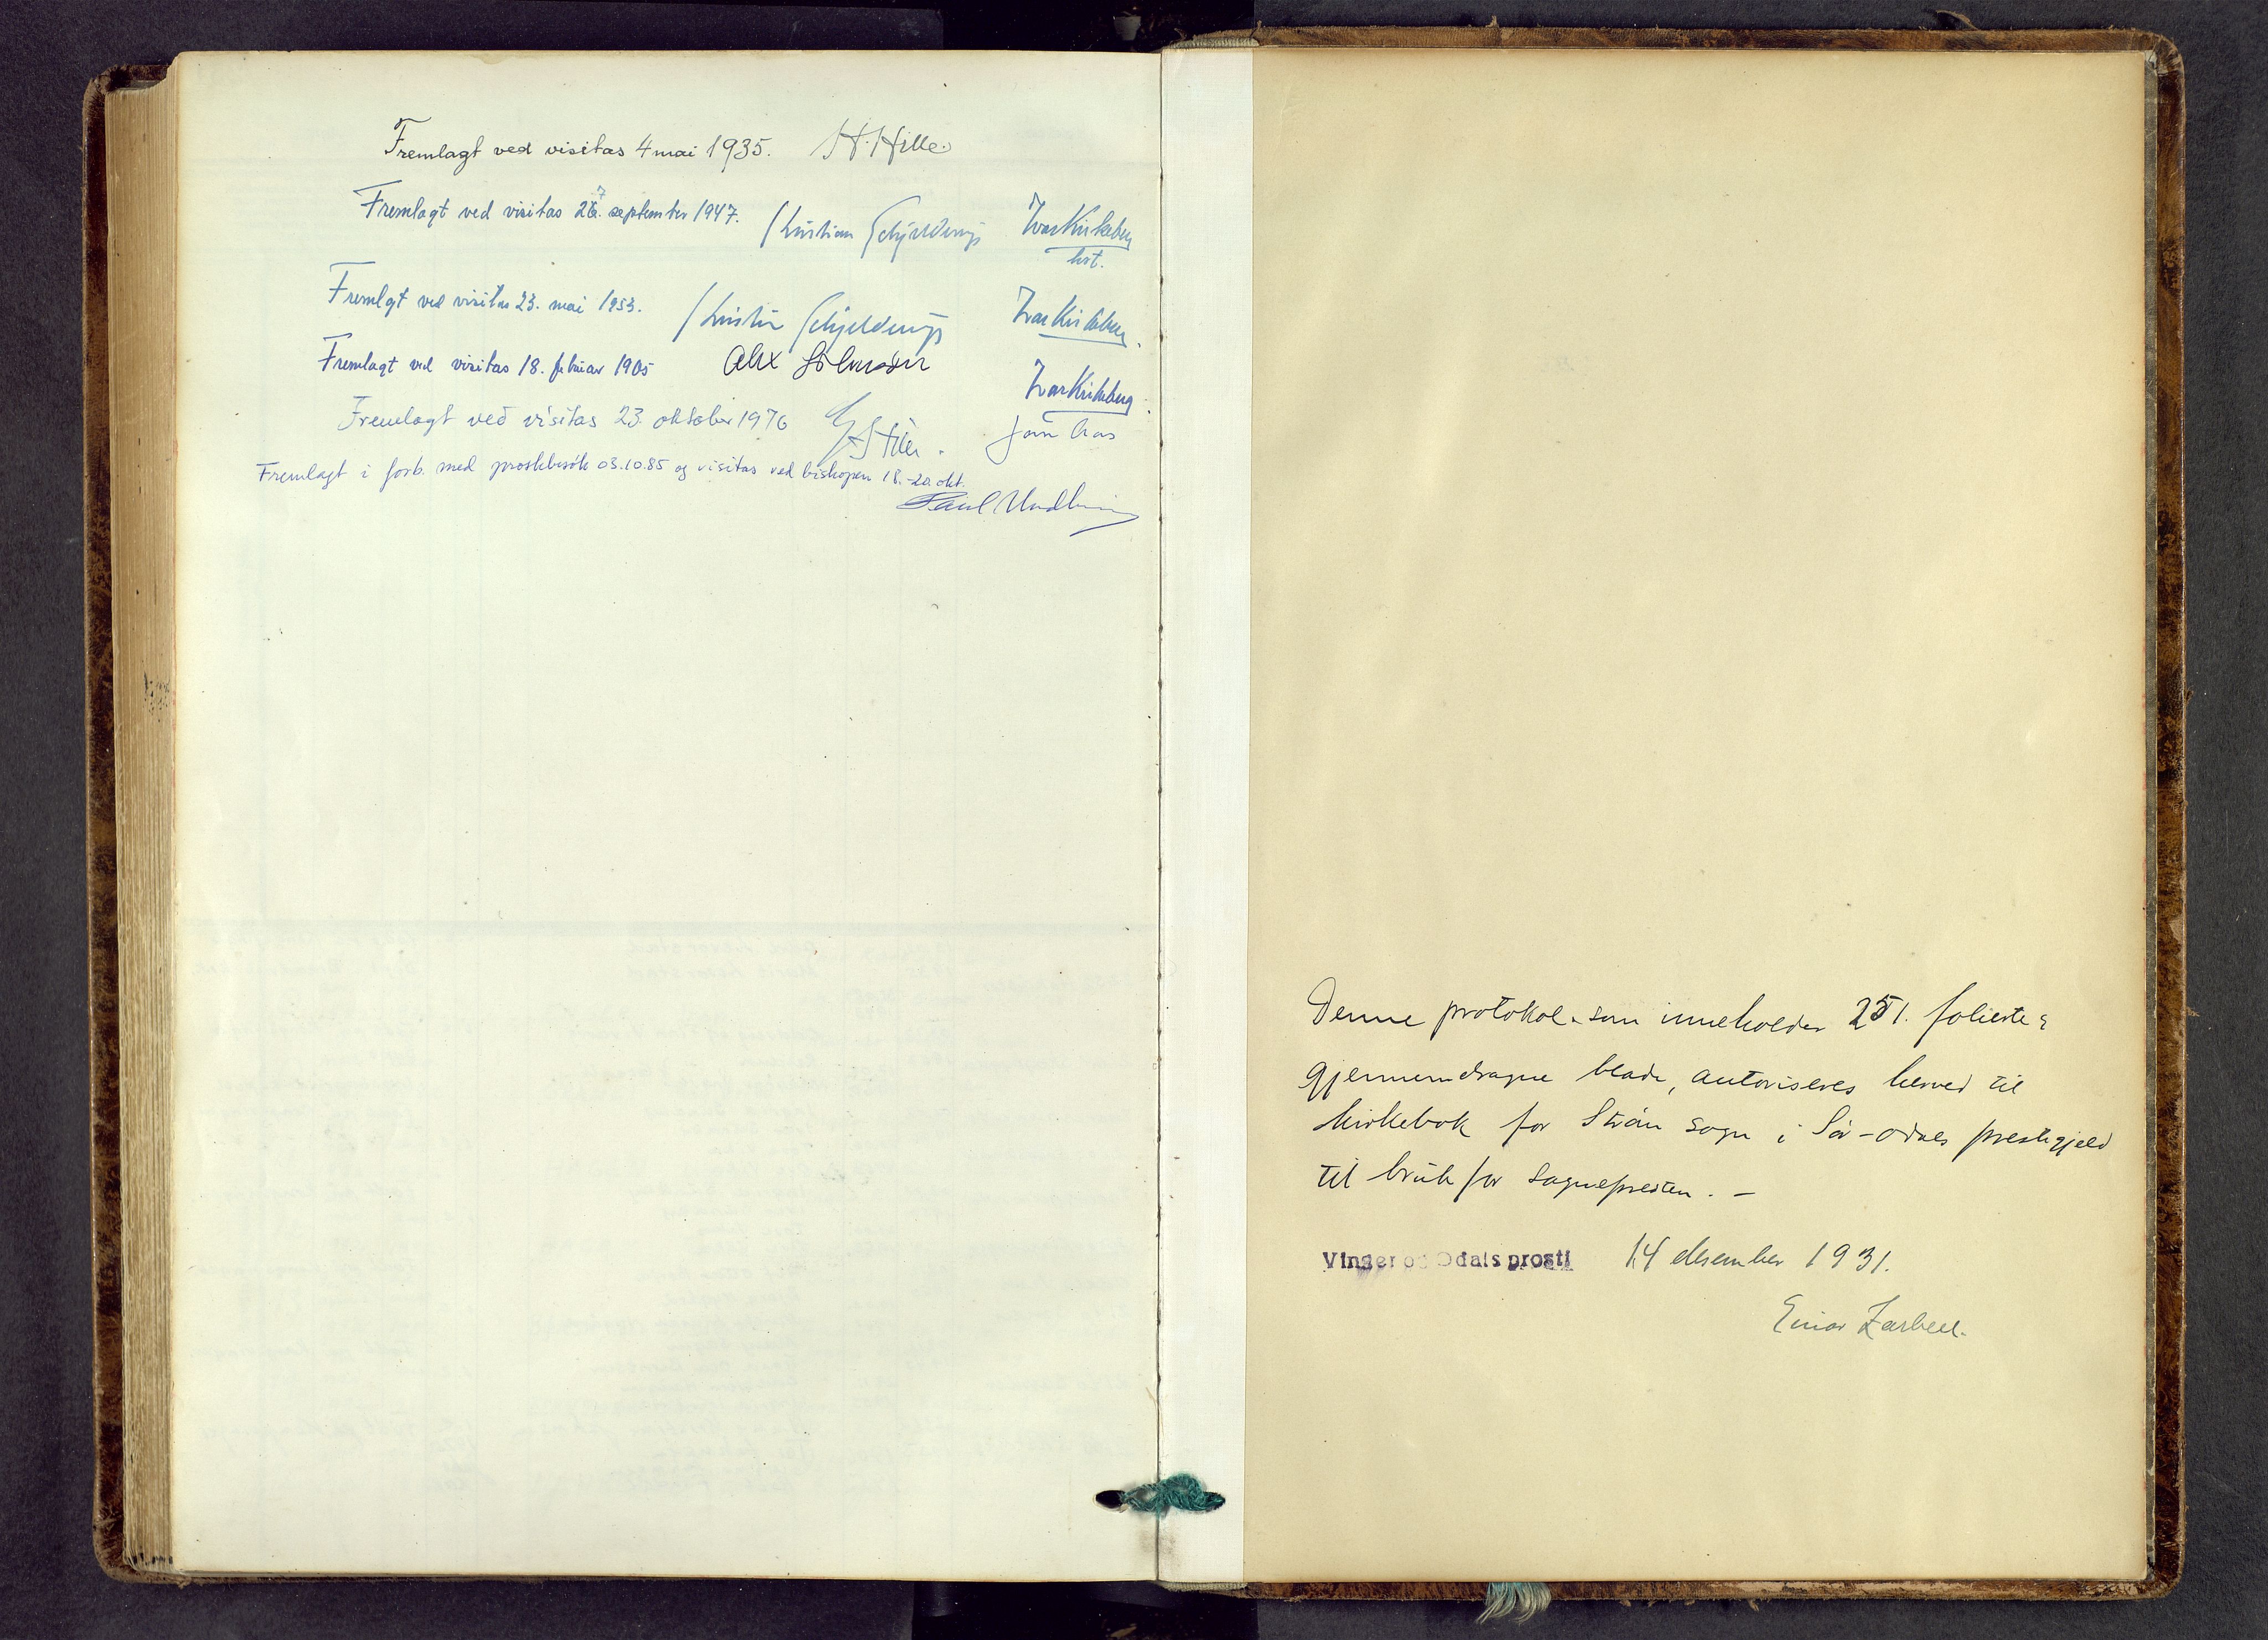 Fremlagt ved visitas 4 mai 1935. H. Hille.
Fremlagt ved visitas 27. september 1947. Kristian Schjelderup Ivar Kirkeberg
Fremlgt ved visitas 23. mai 1953. Kristian Schjelderup Ivar Kirkeberg.
Fremlagt ved visitas 18. februar 1965 Alex Johnson Ivar Kirkeberg.
Fremlagt ved visitas 23. oktober 1976
Fremlagt i forb. med prostebesøk 03.10.85 og visitas ved biskopen 18.-20. okt.
Paul
Denne protokol som inneholder 251. folierte &
gjennemdragne blade, autoriseres herved til
kirkebok for Strøm sogn i Sør-Odals prestegjeld
til bruk for sognepresten. -
Vinger og Odals prosti 14 desember 1931.
Einar